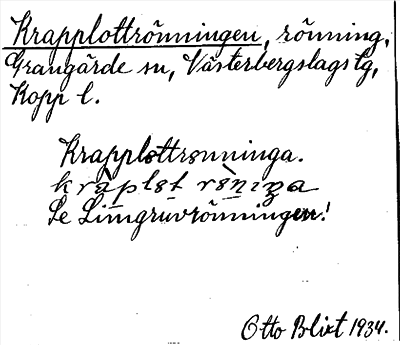 Krapplottrönningen, rönning,
Grangärde sn, Västerbergslags tg,
Kopp l.
Krapplottrönninga.
kràplɔt rö̀niŋa
Se Limgruvrönningen!
Otto Blixt 1934.